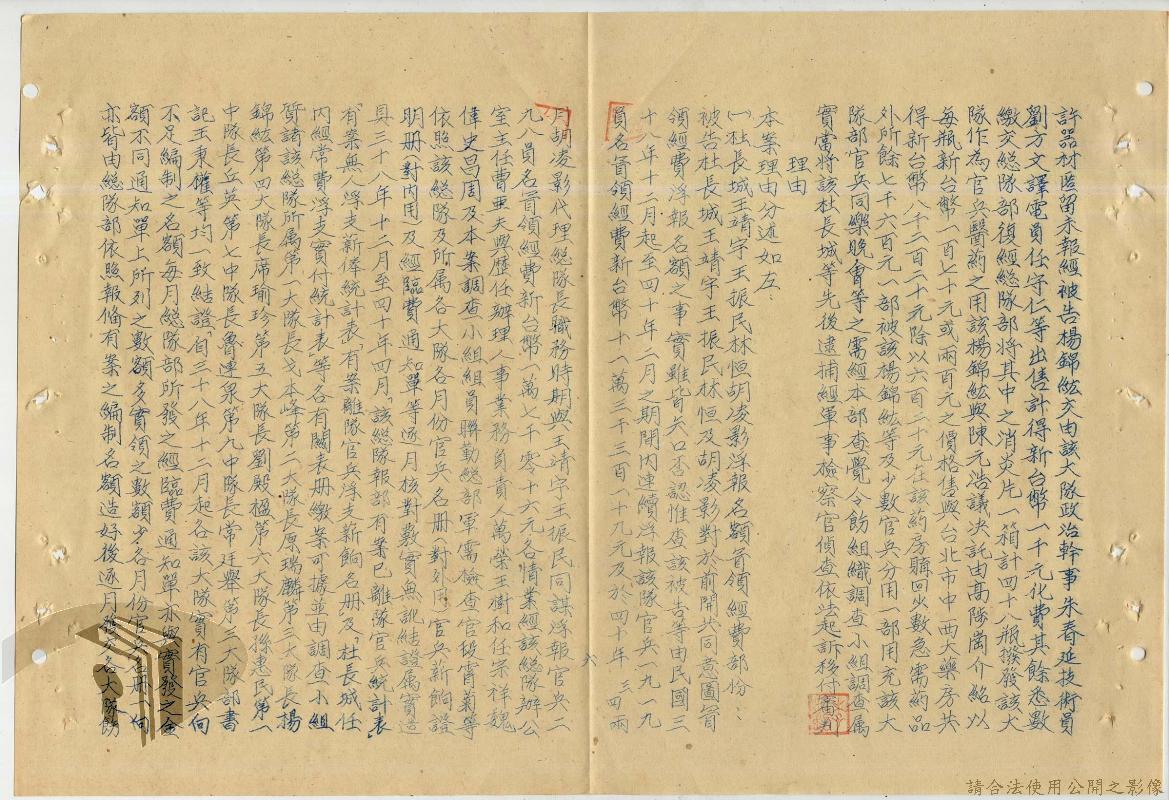 許器材匿留未報經被告楊錦紘交由該大隊政治幹事朱春延技術員
劉方文譯電員任守仁等出售計得新台幣一千元化費其餘悉數
繳交總隊部復經總隊部將其中之消炎片一箱計四十八瓶撥發該大
隊作為官兵醫葯之用該楊錦紘與陳元浩議決託由髙隊崗介紹以
每瓶新台幣一百七十元或兩百元之價格售與台北市中西大藥房共
得新台幣八千二百二十元除以六百二十元在該葯房購回火數急需葯品
外所餘七千六百元一部被該楊錦紘等及少數官兵分用一部用充該大
隊部官兵同樂晚會等之需經本部查覺令飭組織調查小組調查屬
實當將該杜長城等先後逮捕經軍事檢察官偵查依法起訴移付審判
理由
本案理由分述如左：
㈠杜長城王靖宇王振民林恒胡凌影浮報名額冒領經費部份：
被告杜長城王靖宇王振民林恒及胡凌影對於前開共同意圖冒
領經費浮報名額之事實雖皆矢口否認惟查該被告等由民國三
十八年十二月起至四十年二月之期間內連續浮報該隊官兵一九一九
員名冒領經費新台幣十一萬三千三百一十九元及於四十年三四兩
月胡凌影代理總隊長職務時期與王靖宇王振民同謀浮報官兵二
九八員名冒領經費新台幣一萬七千零十六元名情業經該總隊辦公
室主任曹亜夫與歷任辦理人事業務負責人萬榮王樹和任宗祥魏
偉史昌周及本案調查小組組員聯勤總部軍需檢查官段霄菊等
依照該總隊及所屬各大隊各月份官兵名册(對外用)官兵薪餉證
明册(對內用)及經臨費通知單等逐月核對數實無訛結證屬實造
具三十八年十二月至四十年四月「該總隊報部有案已離隊官兵統計表」
「有案無人浮支薪俸統計表」「有案離隊官兵浮支薪餉名册」及「杜長城任
內經常費浮支實付統計表」等各有關表册繳案可據並由調查小組
質諸該總隊所屬第一大隊長戈本峰第二大隊長原瑞麟第三大隊長楊
錦紘第四大隊長席瑜珍第五大隊長劉殿楹第六大隊長孫惠民第一
中隊長丘英第七中隊長魯連泉第九中隊長常廷舉第三大隊部書
記王東權等均一致結證「自三十八年十二月起各該大隊實有官兵向
不足編制之名額每月總隊部所發之經臨費通知單亦與實發之金
額不同通知單上所列之數額多實領之數額少各月份官兵名册一向
亦皆由總隊部依照報備有案之編制名額造好後逐月發交各大隊飭
六
請合法使用公開之影像